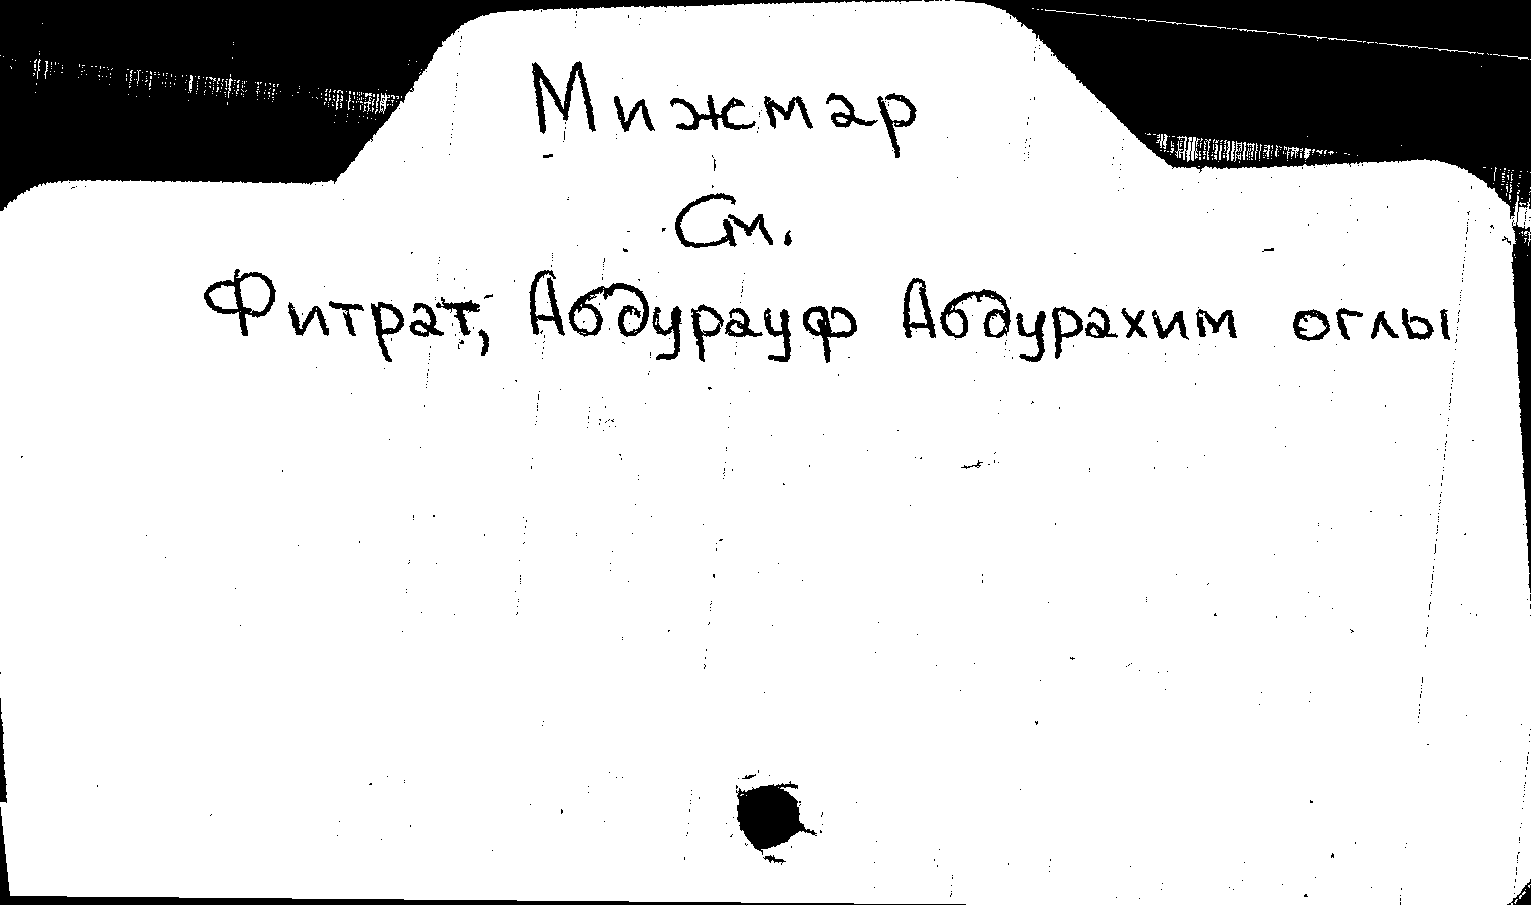 Мижмар
См.
Фитрат, Абдурауф Абдурахим оглы